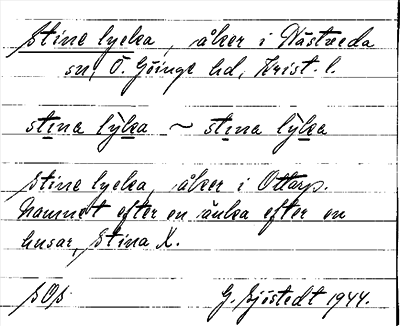 Stine lycka, åker i Nästveda
sn, Ö. Göinge hd, Krist. l.
stina lỳka ~ stina lỳka
Stine lycka, åker i Ottarp.
Namnet efter en änka efter en
husar, Stina X.
SOs
G. Sjöstedt 1944.